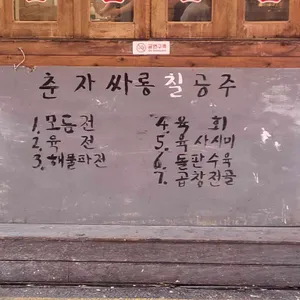 금연구역
춘자싸롱 칠공주
1. 모듬전
2. 육전
3. 해물파전
4. 육회
5. 육사시미
6. 돌판수육
7. 곱창전골